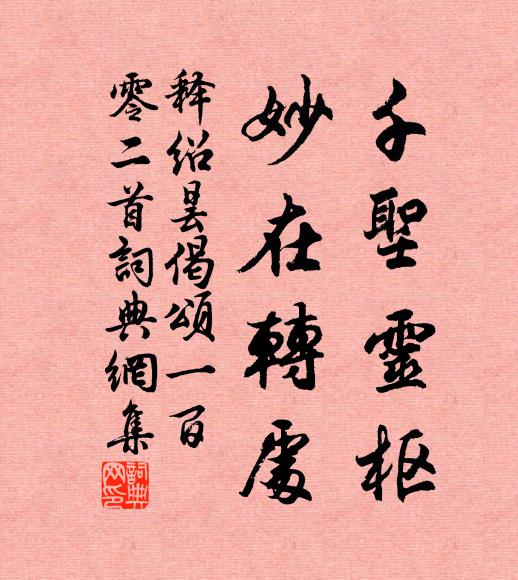 千聖靈樞
妙在轉處
釋紹曇偈頌一百
零二首詞典網集
詞典網印